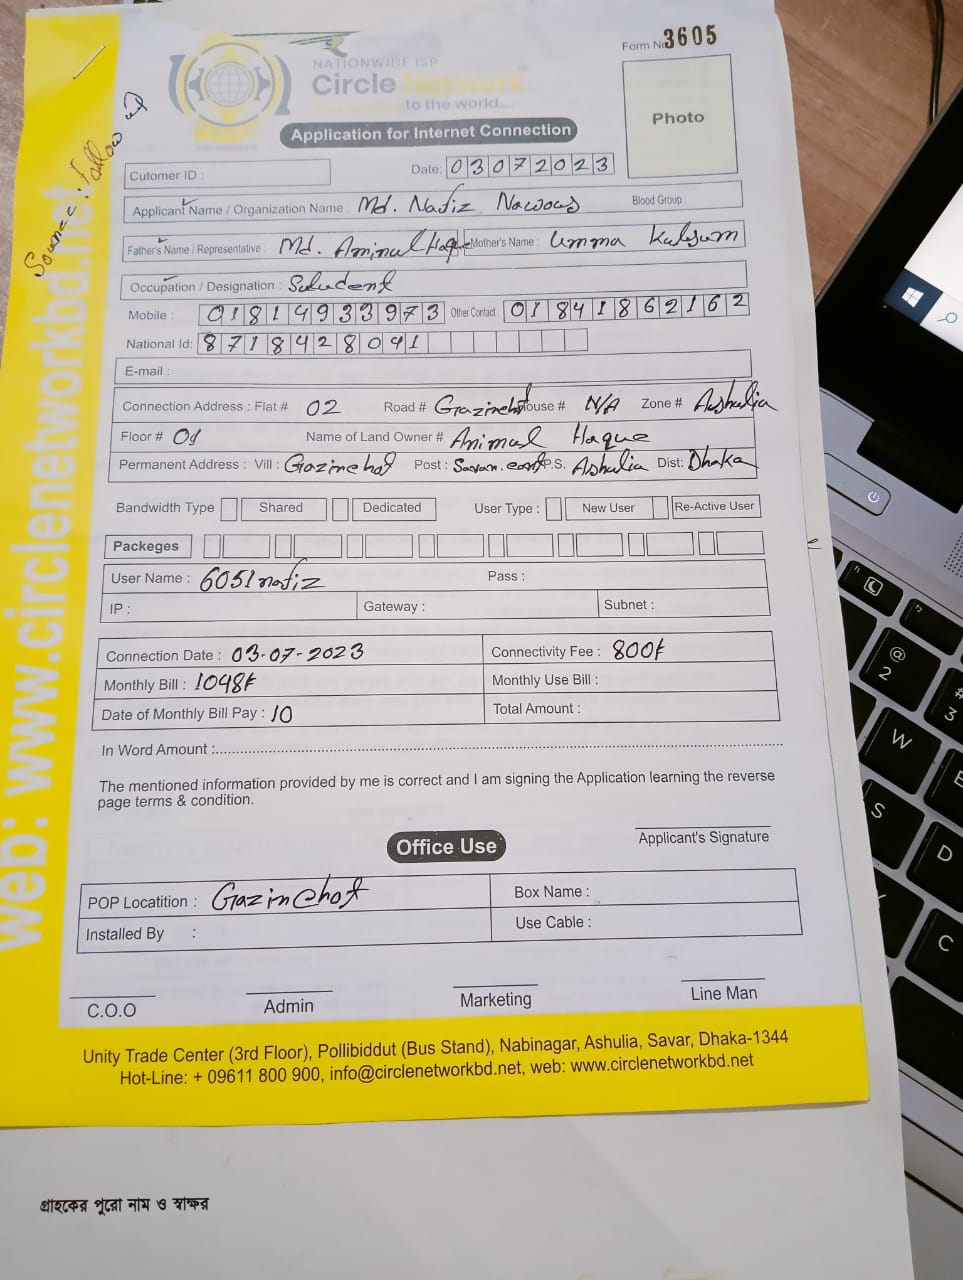 Form No 3605
NATIONWIDE ISP
Circle Network
to the world....
Photo
Application for Internet Connection
Source: Follow up
Cutomer ID :
Date: 03072023
Applicant Name / Organization Name : Md. Nafiz Nawous Blood Group :
Father's Name / Representative : Md. Aminul Haque Mother's Name : Umma Kulsum
Occupation / Designation : Students
Mobile : 01814933973 Other Contact 01841862162
National Id: 8718428041
E-mail :
Connection Address : Flat # 02 Road # Gazirchot House # N/A Zone # Ashulia
Floor # 04 Name of Land Owner # Aminul Haque
Permanent Address : Vill : Gazirchot Post : Savar. cant P.S. Ashulia Dist: Dhaka
Bandwidth Type Shared Dedicated User Type : New User Re-Active User
Packeges
User Name : 6051nafiz Pass :
IP : Gateway : Subnet :
Connection Date : 03-07-2023 Connectivity Fee : 800৳
Monthly Bill : 1048৳ Monthly Use Bill :
Date of Monthly Bill Pay : 10 Total Amount :
In Word Amount :
The mentioned information provided by me is correct and I am signing the Application learning the reverse
page terms & condition.
Applicant's Signature
Office Use
POP Locatition : Gazirchot Box Name :
Installed By : Use Cable :
C.O.O Admin Marketing Line Man
Unity Trade Center (3rd Floor), Pollibiddut (Bus Stand), Nabinagar, Ashulia, Savar, Dhaka-1344
Hot-Line: + 09611 800 900, info@circlenetworkbd.net, web: www.circlenetworkbd.net
web: www.circlenetworkbd.net
গ্রাহকের পুরো নাম ও স্বাক্ষর
@
2
#
3
W
E
S
D
C